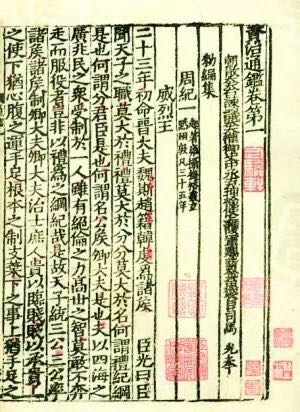 資治通鑑卷第一
朝散大夫右諫議大夫權御史中丞充理檢使上護軍賜紫金魚袋臣司馬 光奉
勑編集
周紀一 起著雍攝提格盡玄黓困敦凡三十五年
威烈王
二十三年初命晉大夫魏斯趙籍韓虔爲諸侯 臣光曰臣
聞天子之職莫大於禮禮莫大於分分莫大於名何謂禮紀綱
是也何謂分君臣是也何謂名公侯卿大夫是也夫以四海之
廣兆民之衆受制於一人雖有絶倫之力高世之智莫敢不奔
走而服役者豈非以禮爲之綱紀哉是故天子統三公三公率
諸侯諸侯制卿大夫卿大夫治士庶人貴以臨賤賤以承貴上
之使下猶心腹之運手足根本之制支葉下之事上猶手足之